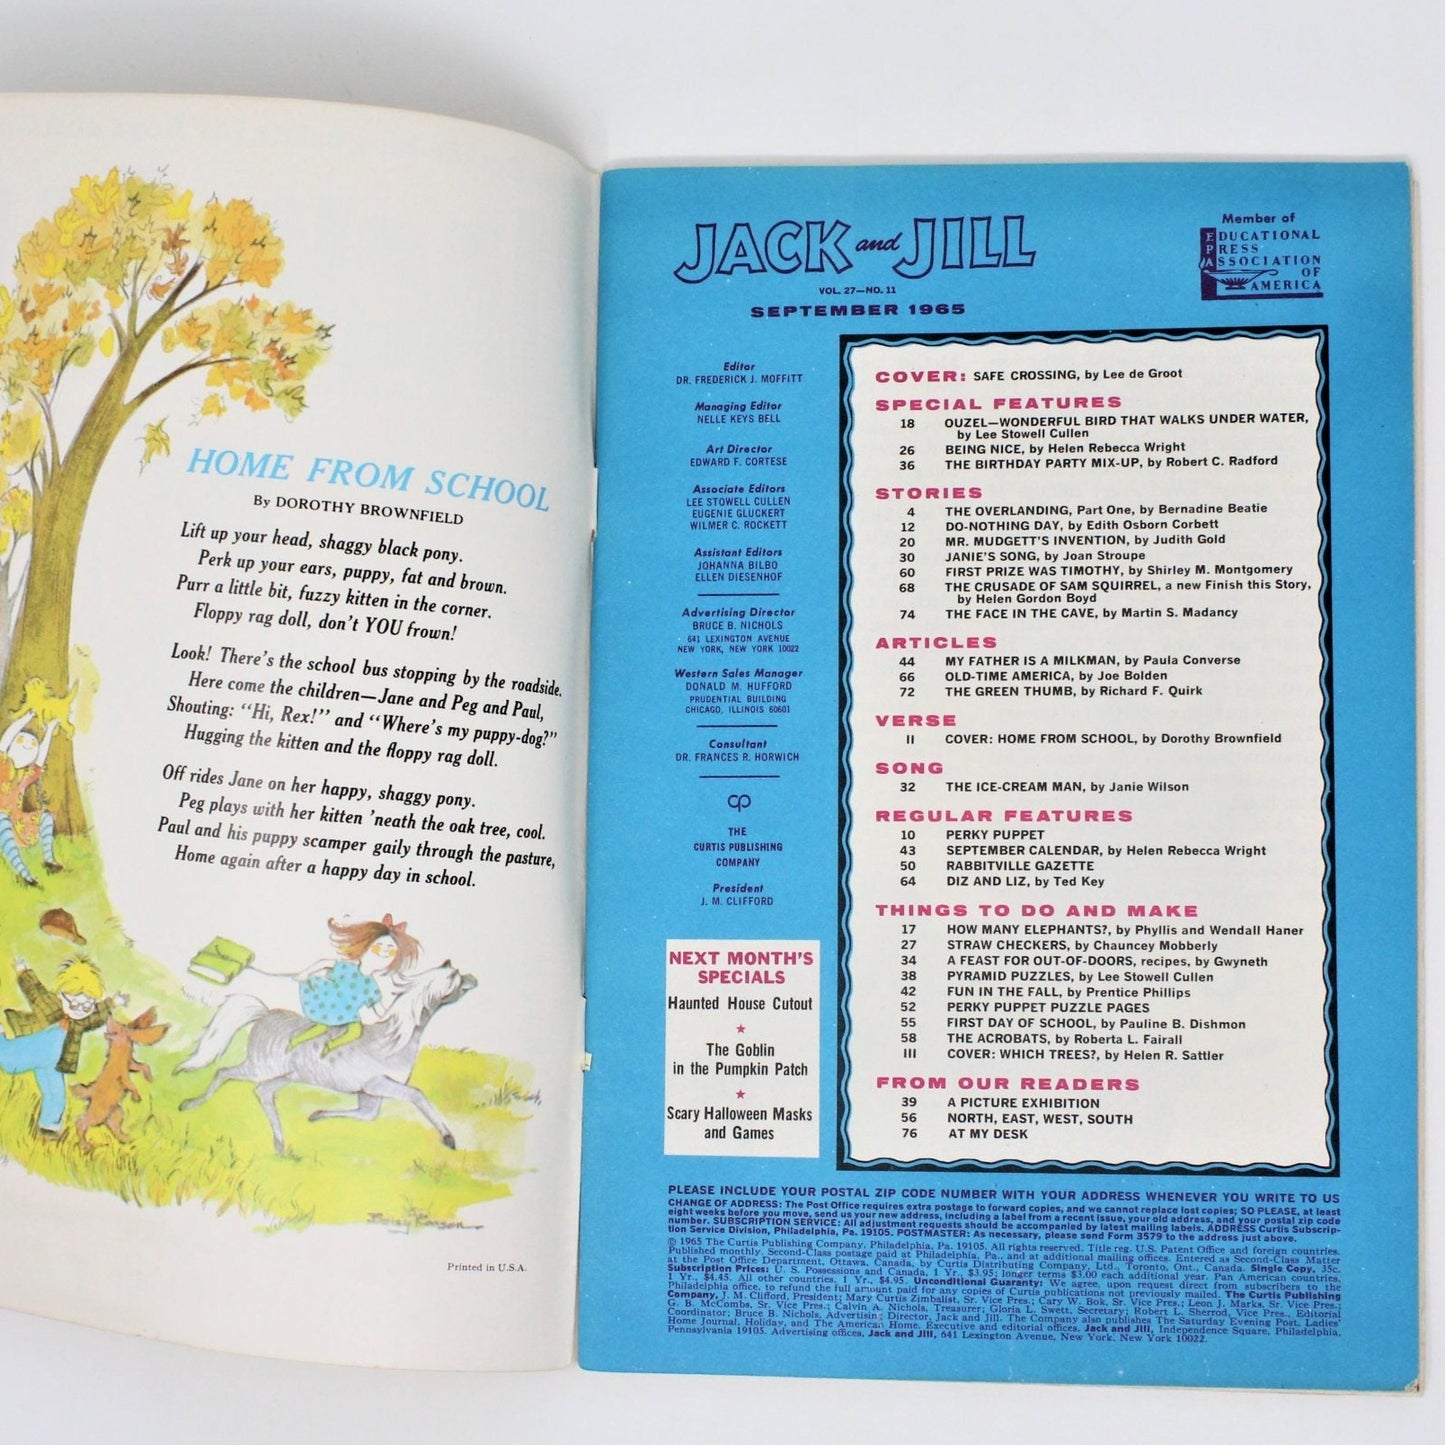 HOME FROM SCHOOL
By DOROTHY BROWNFIELD
Lift up your head, shaggy black pony.
Perk up your ears, puppy, fat and brown.
Purr a little bit, fuzzy kitten in the corner.
Floppy rag doll, don't YOU frown!
Look! There's the school bus stopping by the roadside.
Here come the children—Jane and Peg and Paul,
Shouting: "Hi, Rex!" and "Where's my puppy-dog?"
Hugging the kitten and the floppy rag doll.
Off rides Jane on her happy, shaggy pony.
Peg plays with her kitten 'neath the oak tree, cool.
Paul and his puppy scamper gaily through the pasture,
Home again after a happy day in school.
Printed in U.S.A.
JACK and JILL
VOL. 27—NO. 11
SEPTEMBER 1965
Member of
EDUCATIONAL
PRESS
ASSOCIATION
OF
AMERICA
Editor
DR. FREDERICK J. MOFFITT
Managing Editor
NELLE KEYS BELL
Art Director
EDWARD F. CORTESE
Associate Editors
LEE STOWELL CULLEN
EUGENIE GLUCKERT
WILMER C. ROCKETT
Assistant Editors
JOHANNA BILBO
ELLEN DIESENHOF
Advertising Director
BRUCE B. NICHOLS
641 LEXINGTON AVENUE
NEW YORK, NEW YORK 10022
Western Sales Manager
DONALD M. HUFFORD
PRUDENTIAL BUILDING
CHICAGO, ILLINOIS 60601
Consultant
DR. FRANCES R. HORWICH
cp
THE
CURTIS PUBLISHING
COMPANY
President
J. M. CLIFFORD
NEXT MONTH'S
SPECIALS
Haunted House Cutout
★
The Goblin
in the Pumpkin Patch
★
Scary Halloween Masks
and Games
COVER: SAFE CROSSING, by Lee de Groot
SPECIAL FEATURES
18 OUZEL—WONDERFUL BIRD THAT WALKS UNDER WATER,
by Lee Stowell Cullen
26 BEING NICE, by Helen Rebecca Wright
36 THE BIRTHDAY PARTY MIX-UP, by Robert C. Radford
STORIES
4 THE OVERLANDING, Part One, by Bernadine Beatie
12 DO-NOTHING DAY, by Edith Osborn Corbett
20 MR. MUDGETT'S INVENTION, by Judith Gold
30 JANIE'S SONG, by Joan Stroupe
60 FIRST PRIZE WAS TIMOTHY, by Shirley M. Montgomery
68 THE CRUSADE OF SAM SQUIRREL, a new Finish this Story,
by Helen Gordon Boyd
74 THE FACE IN THE CAVE, by Martin S. Madancy
ARTICLES
44 MY FATHER IS A MILKMAN, by Paula Converse
66 OLD-TIME AMERICA, by Joe Bolden
72 THE GREEN THUMB, by Richard F. Quirk
VERSE
II COVER: HOME FROM SCHOOL, by Dorothy Brownfield
SONG
32 THE ICE-CREAM MAN, by Janie Wilson
REGULAR FEATURES
10 PERKY PUPPET
43 SEPTEMBER CALENDAR, by Helen Rebecca Wright
50 RABBITVILLE GAZETTE
64 DIZ AND LIZ, by Ted Key
THINGS TO DO AND MAKE
17 HOW MANY ELEPHANTS?, by Phyllis and Wendall Haner
27 STRAW CHECKERS, by Chauncey Mobberly
34 A FEAST FOR OUT-OF-DOORS, recipes, by Gwyneth
38 PYRAMID PUZZLES, by Lee Stowell Cullen
42 FUN IN THE FALL, by Prentice Phillips
52 PERKY PUPPET PUZZLE PAGES
55 FIRST DAY OF SCHOOL, by Pauline B. Dishmon
58 THE ACROBATS, by Roberta L. Fairall
III COVER: WHICH TREES?, by Helen R. Sattler
FROM OUR READERS
39 A PICTURE EXHIBITION
56 NORTH, EAST, WEST, SOUTH
76 AT MY DESK
PLEASE INCLUDE YOUR POSTAL ZIP CODE NUMBER WITH YOUR ADDRESS WHENEVER YOU WRITE TO US
CHANGE OF ADDRESS: The Post Office requires extra postage to forward copies, and we cannot replace lost copies; SO PLEASE, at least
eight weeks before you move, send us your new address, including a label from a recent issue, your old address, and your postal zip code
number. SUBSCRIPTION SERVICE: All adjustment requests should be accompanied by latest mailing labels. ADDRESS Curtis Subscrip-
tion Service Division, Philadelphia, Pa. 19105. POSTMASTER: As necessary, please send Form 3579 to the address just above.
© 1965 The Curtis Publishing Company, Philadelphia, Pa. 19105. All rights reserved. Title reg. U.S. Patent Office and foreign countries.
Published monthly. Second-Class postage paid at Philadelphia, Pa., and at additional mailing offices. Entered as Second-Class Matter
at the Post Office Department, Ottawa, Canada, by Curtis Distributing Company, Ltd., Toronto, Ont., Canada. Single Copy, 35c.
Subscription Prices: U. S. Possessions and Canada, 1 Yr., $3.95; longer terms $3.00 each additional year. Pan American countries,
1 Yr., $4.45. All other countries, 1 Yr., $4.95. Unconditional Guaranty: We agree, upon request direct from subscribers to the
Philadelphia office, to refund the full amount paid for any copies of Curtis publications not previously mailed. The Curtis Publishing
Company, J. M. Clifford, President; Mary Curtis Zimbalist, Sr. Vice Pres.; Cary W. Bok, Sr. Vice Pres.; Leon J. Marks, Sr. Vice Pres.;
G. B. McCombs, Sr. Vice Pres.; Calvin A. Nichols, Treasurer; Gloria L. Swett, Secretary; Robert L. Sherrod, Vice Pres., Editorial
Coordinator; Bruce B. Nichols, Advertising Director, Jack and Jill. The Company also publishes The Saturday Evening Post, Ladies'
Home Journal, Holiday, and The American Home. Executive and editorial offices, Jack and Jill, Independence Square, Philadelphia,
Pennsylvania 19105. Advertising offices, Jack and Jill, 641 Lexington Avenue, New York, New York 10022.